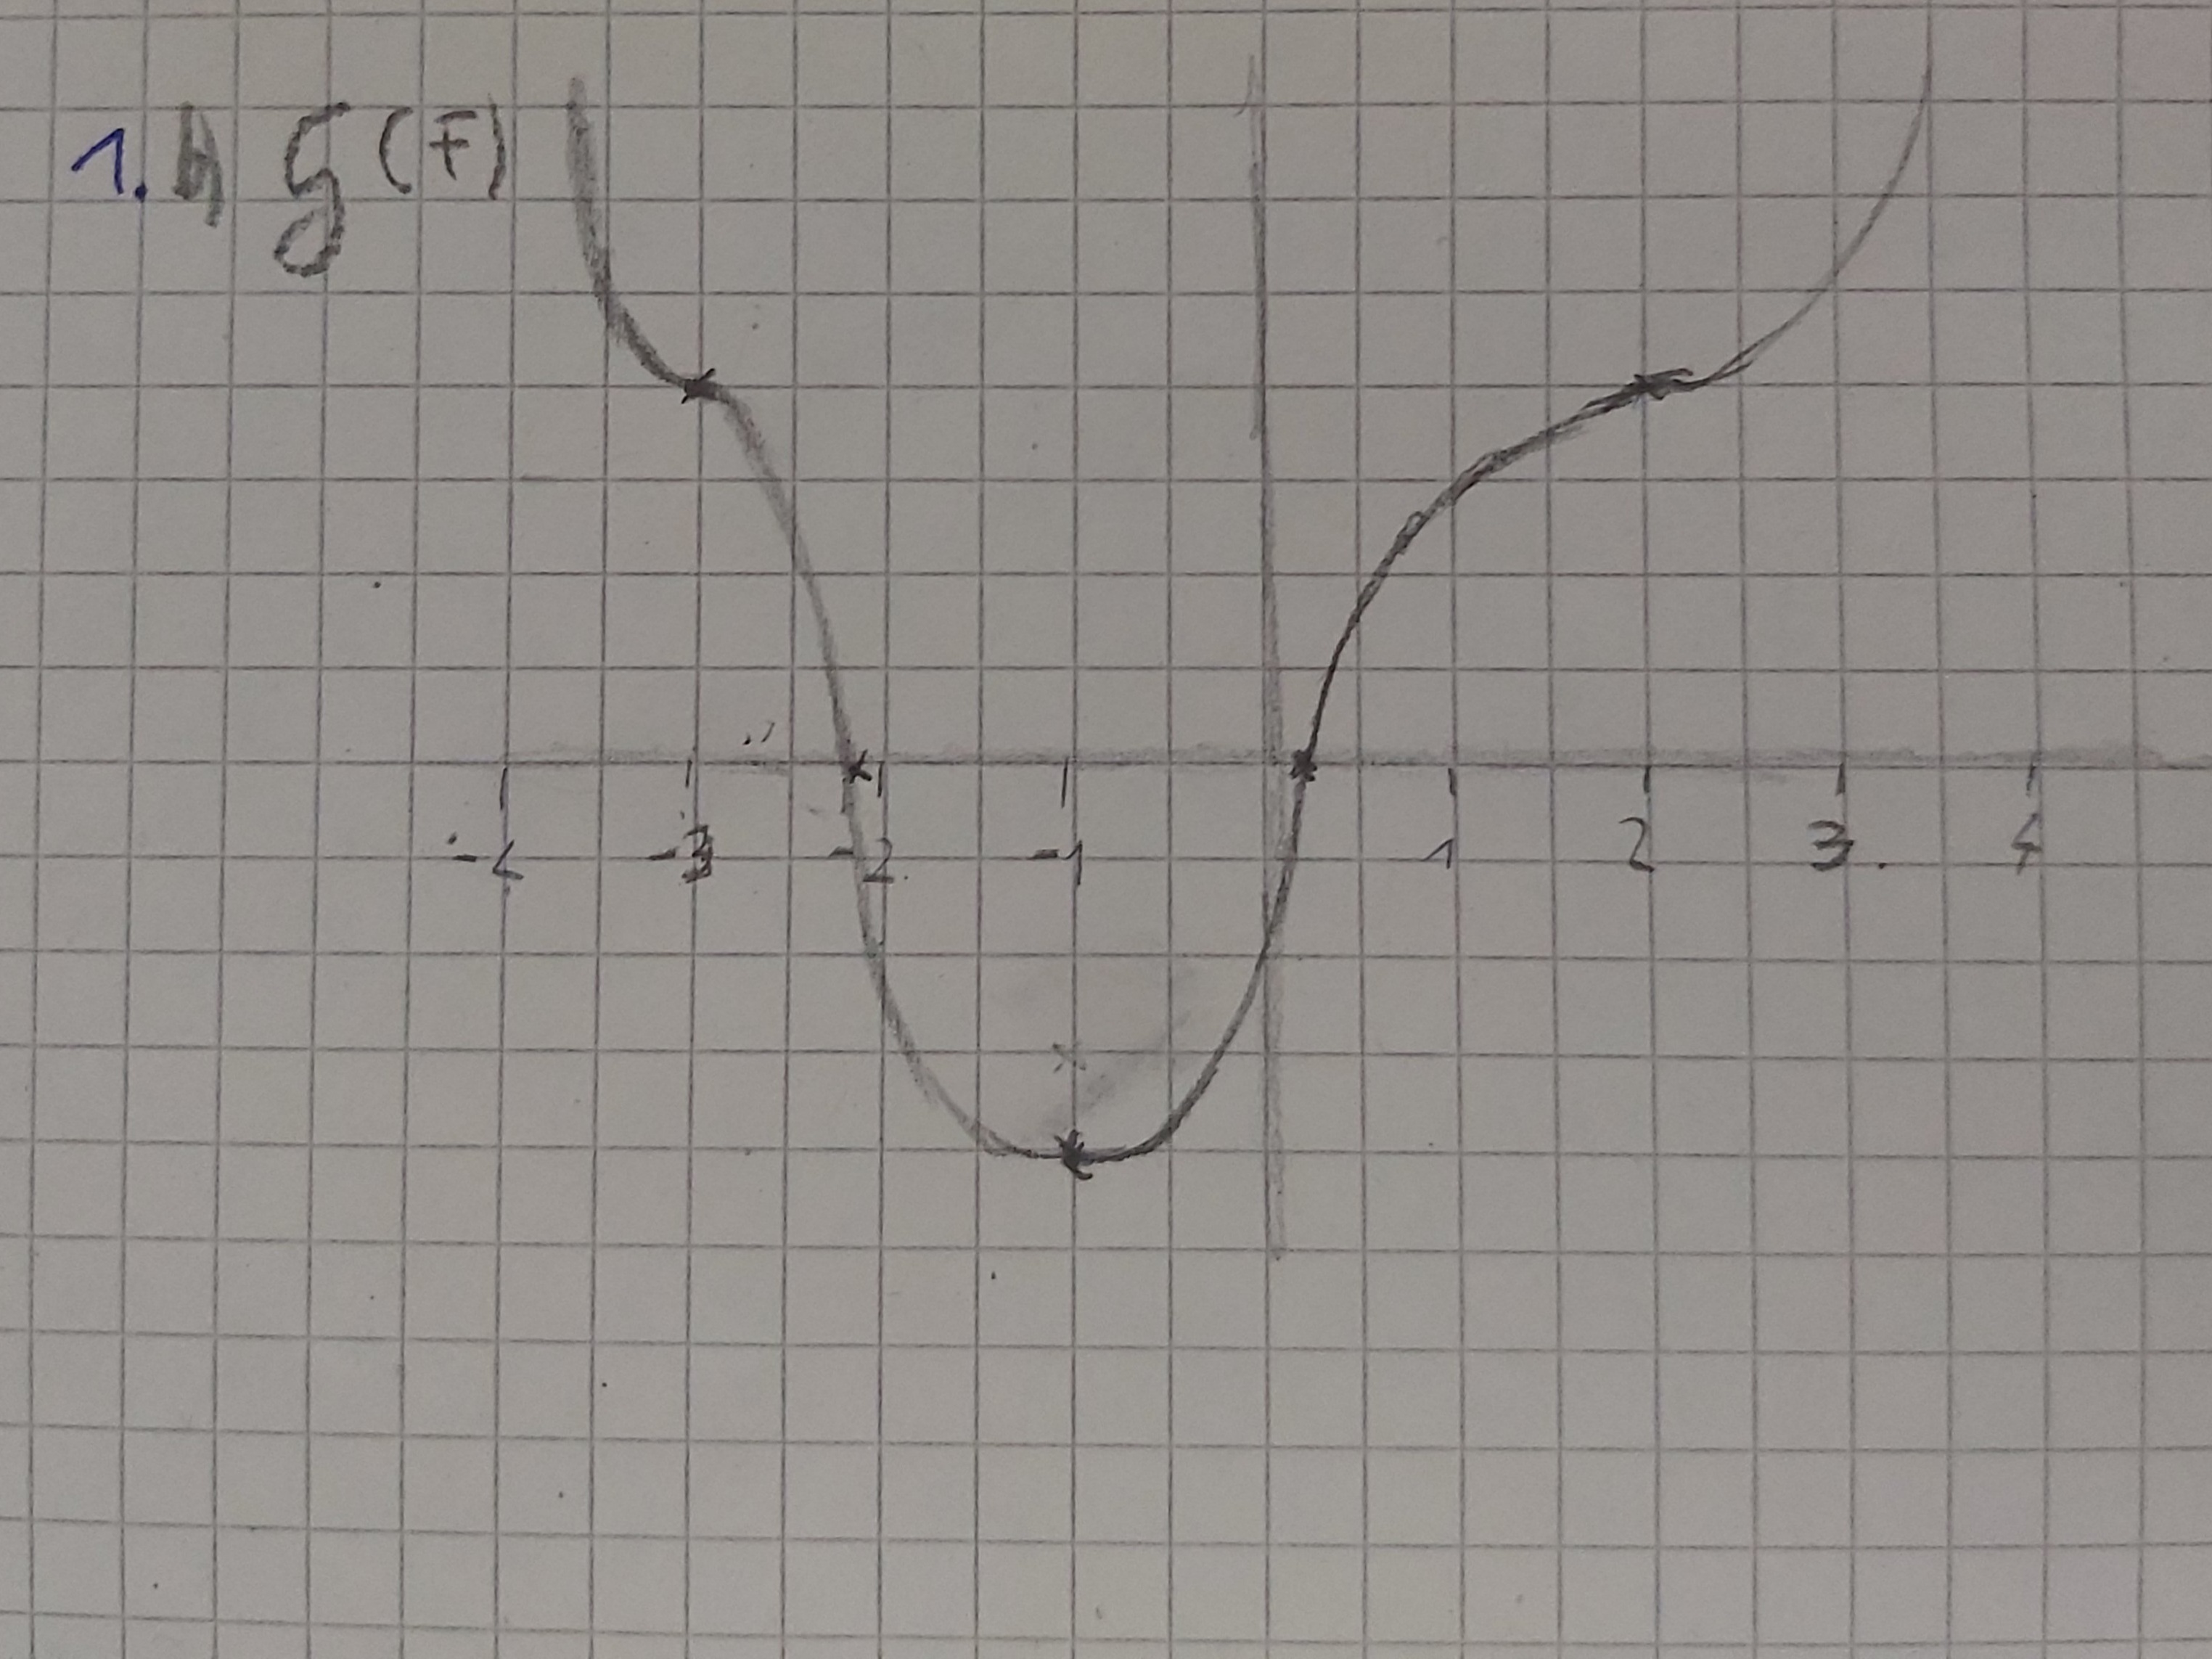 1. g (F)
-4 -3 -2 -1 1 2 3. 4